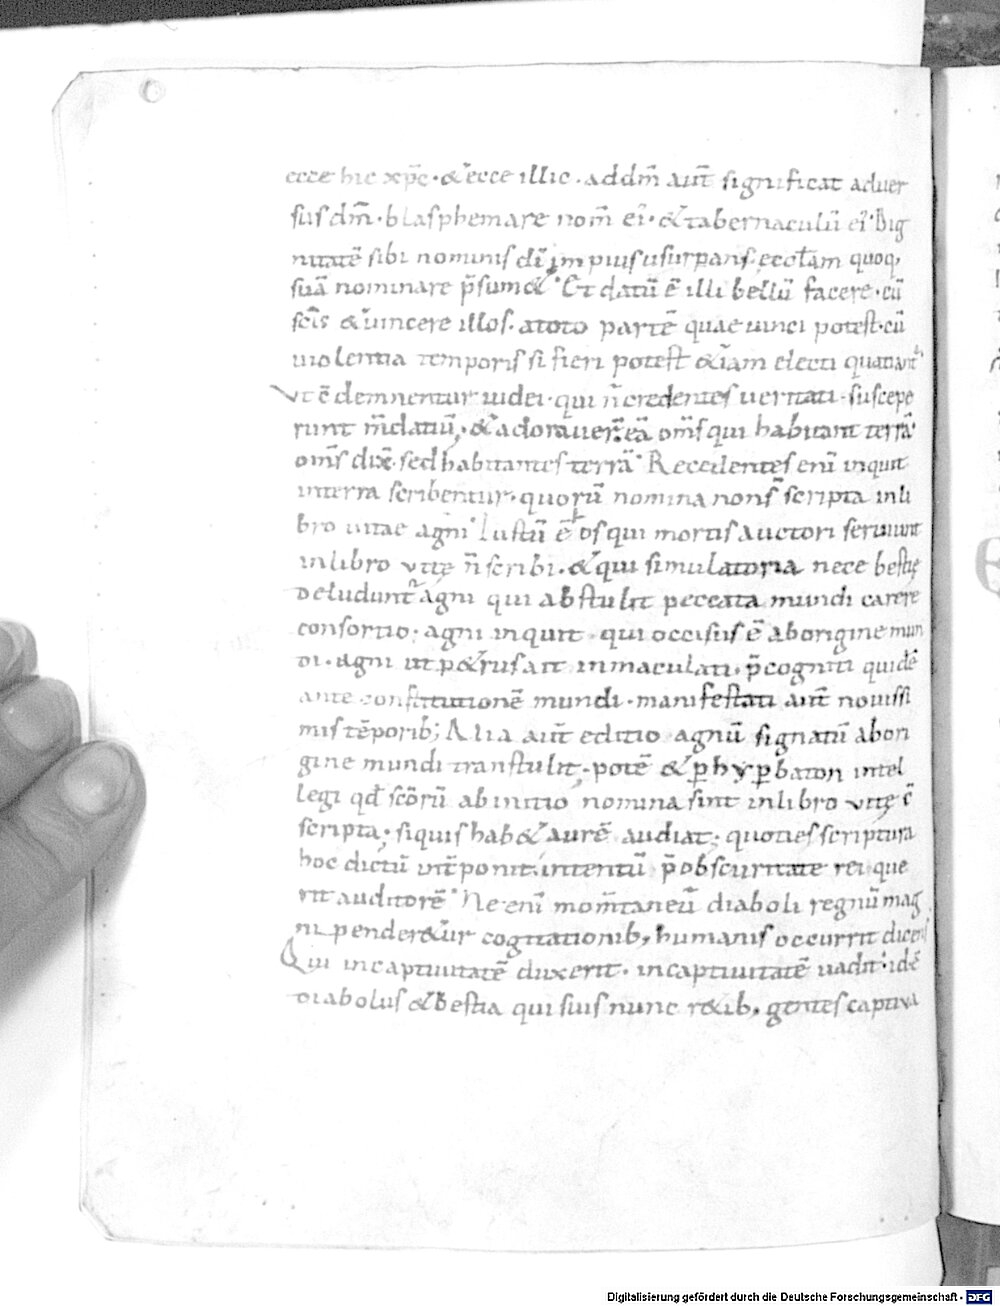 ecce hic xp̄c · & ecce illic · addm̄ aut̄ significat aduer
sus dm̄ · blasphemare nom̄ ei · & tabernaculū ei · Dig
nitatē sibi nominis dī impius usurpans · eccl̄am quoq,
suā nominare p̄sum& · Et datū ē illi bellū facere · cū
sc̄is & uincere illos · atoto partē quae uinci potest · cū
uiolentia temporis si fieri potest &iam electi quatiant̃
vt ēdemnentur iudei · qui n̄ credentes ueritati · suscepe
runt m̄datiū, · & adorauer̄ eā om̄s qui habitant terrā ·
om̄s dix̄ · sed habitantes terrā · Recedentes eni inquit
interra scribentur · quorū nomina nons̄ scripta inli
bro uitae agni · Iustū ē os qui mortis auctori seruiunt
inlibro vitę n̄ scribi · & qui simulatoria nece bestię
deludunt̃ agni qui abstulit peccata mundi carere
consortio ; agni inquit · qui occisus ē aborigine mun
di · agni ut p&rus ait inmaculati · p̄cogniti quidē
ante constitutionē mundi · manifestati aut̄ nouissi
mis tēporib; Alia aut̄ editio agnū signatū abori
gine mundi transtulit; potē & ꝑhyꝑbaton intel
legi qđ sc̄orū abinitio nomina sint inlibro vitę
scripta; siquis hab& aurē audiat; quoties scriptura
hoc dictū int̄ponit · intentū p̄ obscuritate rei que
rit auditorē · Ne eni mom̄taneū diaboli regnū mag
ni pender&ur cogitationib, humanis occurrit dicens
Qui incaptiuitatē duxerit · incaptiuitatē uadit · idē
diabolus & bestia qui suis nunc r&ib, gentes captiua
Digitalisierung gefördert durch die Deutsche Forschungsgemeinschaft - DFG